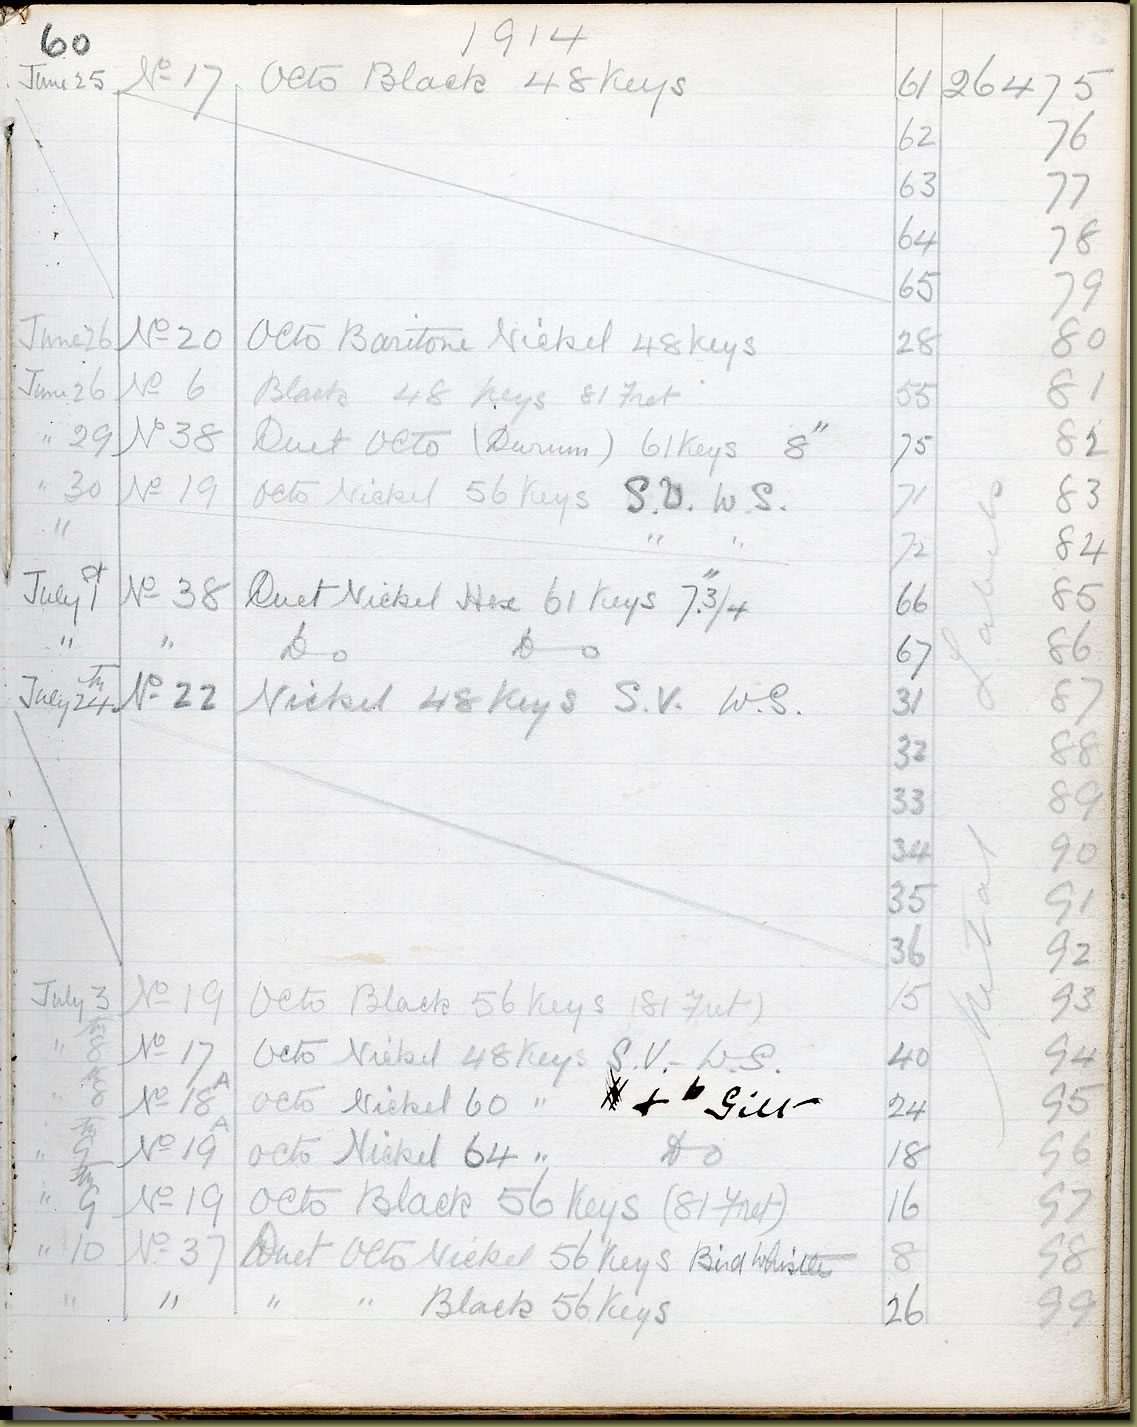 60 1914
June 25 No 17 Octo Black 48 Keys 61 26475
62 76
63 77
64 78
65 79
June 26 No 20 Octo Baritone Nickel 48 Keys 28 80
June 26 No 6 Black 48 Keys 81 Fret 55 81
" 29 No 38 Duet Octo (Durum) 61 Keys 8" 75 82
" 30 No 19 Octo Nickel 56 Keys S.V. W.S. 71 83
" " " 72 84
July 1st No 38 Duet Nickel Hex 61 Keys 7.3/4" 66 85
" " Do Do 67 86
July 24th No 22 Nickel 48 Keys S.V. W.S. 31 87
32 88
33 89
34 90
35 91
36 92
July 3 No 19 Octo Black 56 Keys (81 Fret) 15 93
" No 17 Octo Nickel 48 Keys S.V. - W.S. 40 94
" 8 No 18A Octo Nickel 60 " Gilt 24 95
" 9th No 19A Octo Nickel 64 " Do 18 96
" 9th No 19 Octo Black 56 Keys (81 Fret) 16 97
" 10 No 37 Duet Octo Nickel 56 Keys Bird Whistle 8 98
" " " " Black 56 Keys 26 99
Metal